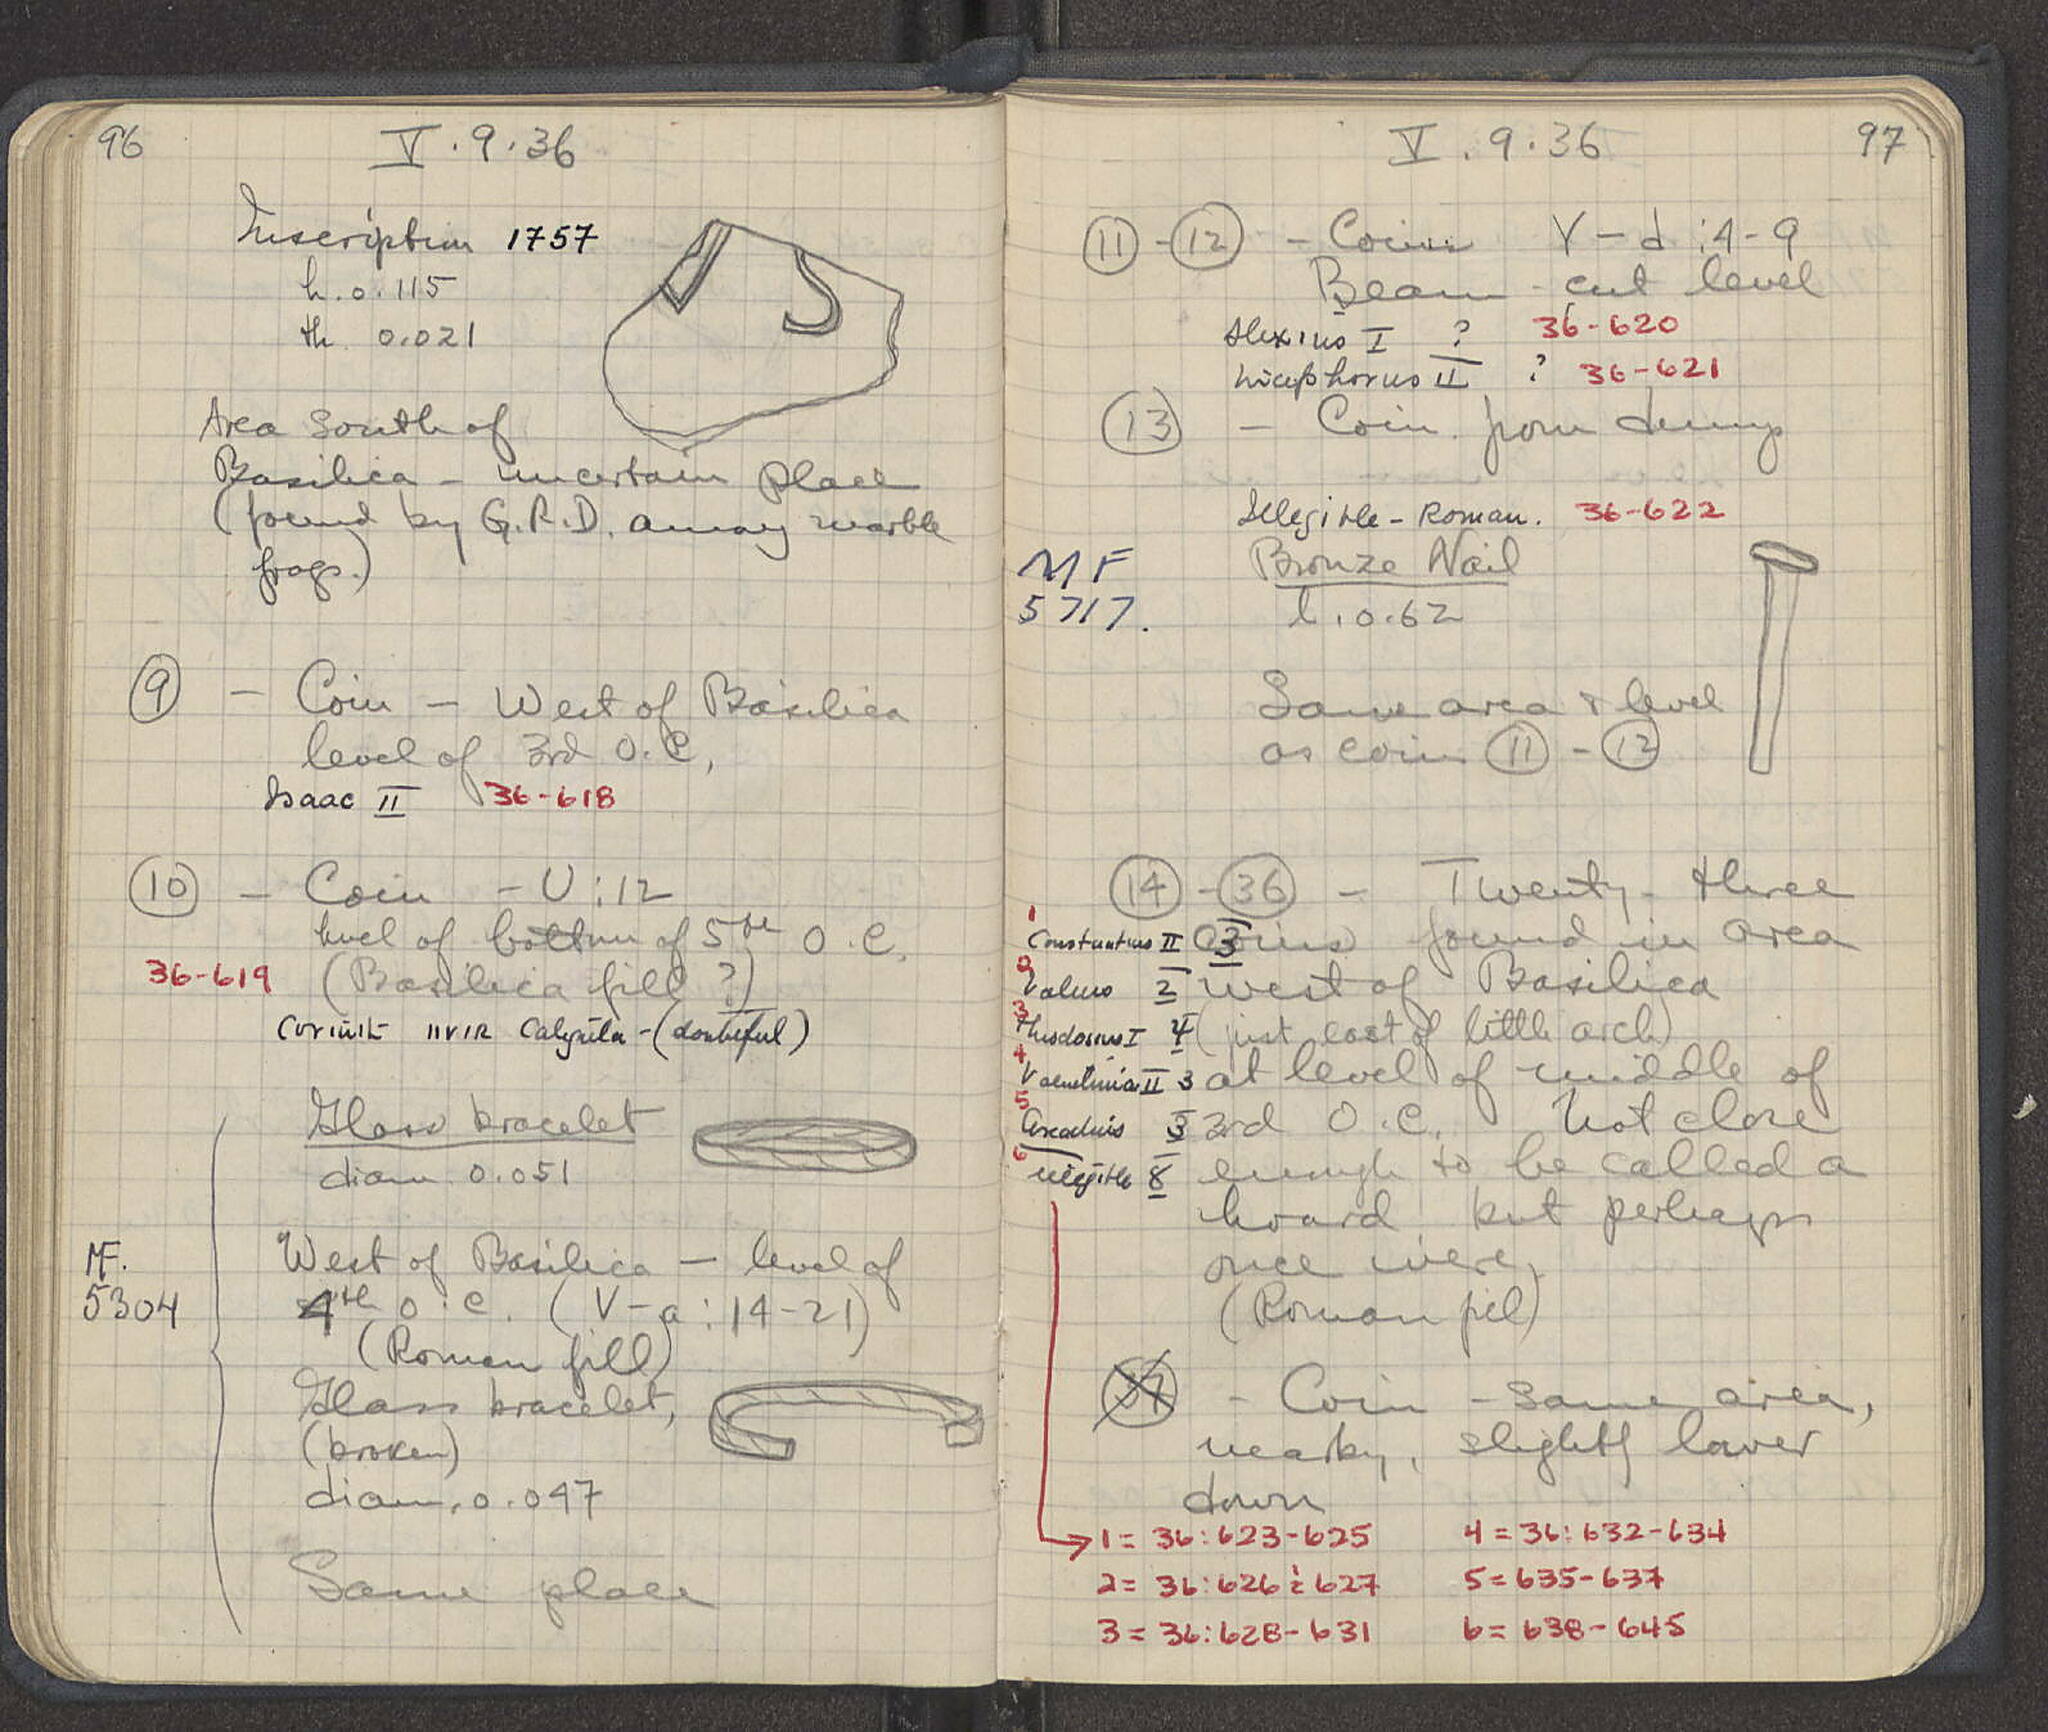 96
V.9.36
Inscription 1757
h. 0.115
th. 0.021
Area South of
Basilica - uncertain place
(found by G.R.D. among marble
frags.)
9 - Coin - West of Basilica
level of 3rd O.C.
Isaac II 36-618
10 - Coin - U:12
level of bottom of 5th O.C.
36-619 (Basilica fill ?)
Corinth IIVIR Caligula - (doubtful)
Glass bracelet
diam 0.051
MF.
5304
West of Basilica - level of
4th O.C. (V-a:14-21)
(Roman fill)
Glass bracelet,
(broken)
diam. 0.047
Same place
V.9.36
97
11 - 12 - Coins V-d:4-9
Beam-cut level
Alexius I ? 36-620
Nicephorus II ? 36-621
13 - Coin from dump
Illegible - Roman. 36-622
MF
5717.
Bronze Nail
l. 0.62
Same area & level
as coin 11 - 12
14 - 36 - Twenty-three
coins found in area
west of Basilica
(just east of little arch)
at level of middle of
3rd O.C. Not close
enough to be called a
hoard but perhaps
once were.
(Roman fill)
1 Constantius II 3
2 Valens 2
3 Theodosius I 4
4 Valentinian II 3
5 Arcadius 3
6 illegible 8
37 - Coin - same area,
nearby, slightly lower
down
1 = 36:623-625 4 = 36:632-634
2 = 36:626 & 627 5 = 635-637
3 = 36:628-631 6 = 638-645